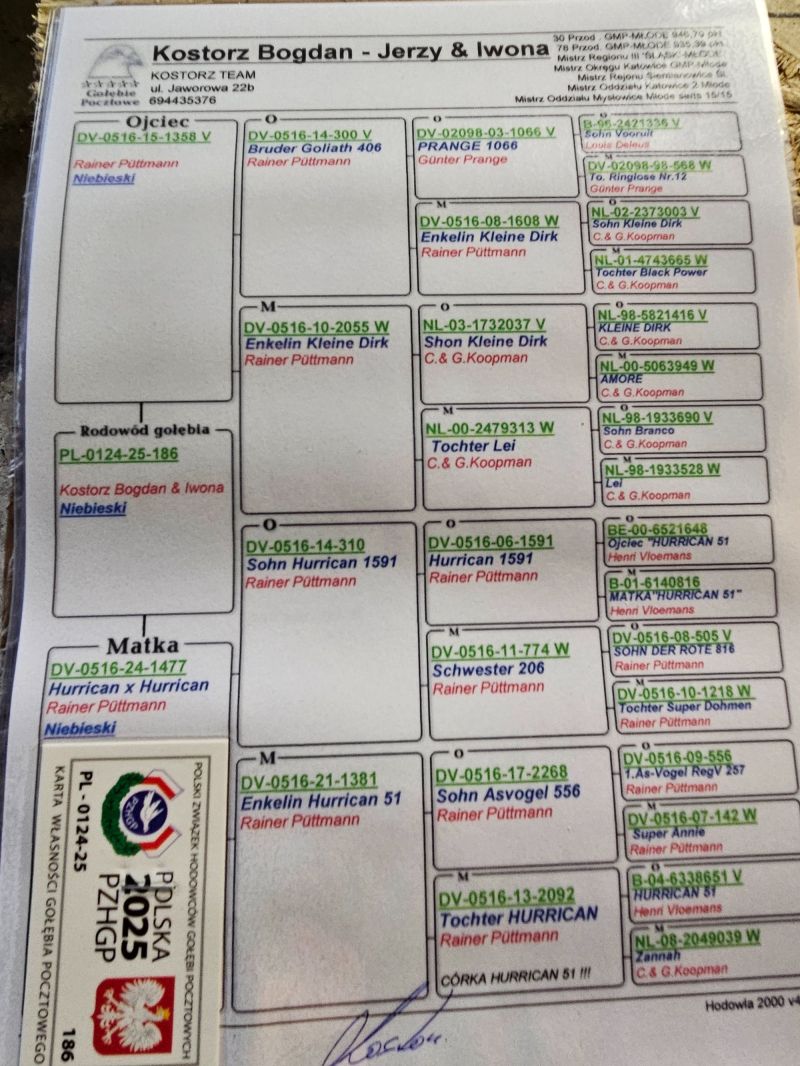 Kostorz Bogdan - Jerzy & Iwona
KOSTORZ TEAM
ul. Jaworowa 22b
694435376
Gołębie
Pocztowe
30 Przod. GMP-MŁODE 946,79 pkt
78 Przod. GMP-MŁODE 935,39 pkt
Mistrz Regionu III "ŚLĄSK-MŁODE"
Mistrz Okręgu Katowice GMP-Młode
Mistrz Rejonu Siemianowice Śl.
Mistrz Oddziału Katowice 2 Młode
Mistrz Oddziału Mysłowice Młode seris 15/15
Ojciec
DV-0516-15-1358 V
Rainer Püttmann
Niebieski
Rodowód gołębia
PL-0124-25-186
Kostorz Bogdan & Iwona
Niebieski
Matka
DV-0516-24-1477
Hurrican x Hurrican
Rainer Püttmann
Niebieski
O
DV-0516-14-300 V
Bruder Goliath 406
Rainer Püttmann
M
DV-0516-10-2055 W
Enkelin Kleine Dirk
Rainer Püttmann
O
DV-0516-14-310
Sohn Hurrican 1591
Rainer Püttmann
M
DV-0516-21-1381
Enkelin Hurrican 51
Rainer Püttmann
O
DV-02098-03-1066 V
PRANGE 1066
Günter Prange
M
DV-0516-08-1608 W
Enkelin Kleine Dirk
Rainer Püttmann
O
NL-03-1732037 V
Shon Kleine Dirk
C.& G.Koopman
M
NL-00-2479313 W
Tochter Lei
C.& G.Koopman
O
DV-0516-06-1591
Hurrican 1591
Rainer Püttmann
M
DV-0516-11-774 W
Schwester 206
Rainer Püttmann
O
DV-0516-17-2268
Sohn Asvogel 556
Rainer Püttmann
M
DV-0516-13-2092
Tochter HURRICAN
Rainer Püttmann
CÓRKA HURRICAN 51 !!!
O
B-95-2421335 V
Sohn Vooruit
Louis Deleus
M
DV-02098-98-568 W
To. Ringlose Nr.12
Günter Prange
O
NL-02-2373003 V
Sohn Kleine Dirk
C.& G.Koopman
M
NL-01-4743665 W
Tochter Black Power
C.& G.Koopman
O
NL-98-5821416 V
KLEINE DIRK
C.& G.Koopman
M
NL-00-5063949 W
AMORE
C.& G.Koopman
O
NL-98-1933690 V
Sohn Branco
C.& G.Koopman
M
NL-98-1933528 W
Lei
C.& G.Koopman
O
BE-00-6521648
Ojciec "HURRICAN 51
Henri Vloemans
M
B-01-6140816
MATKA"HURRICAN 51"
Henri Vloemans
O
DV-0516-08-505 V
SOHN DER ROTE 816
Rainer Püttmann
M
DV-0516-10-1218 W
Tochter Super Dohmen
Rainer Püttmann
O
DV-0516-09-556
1.As-Vogel RegV 257
Rainer Püttmann
M
DV-0516-07-142 W
Super Annie
Rainer Püttmann
O
B-04-6338651 V
HURRICAN 51
Henri Vloemans
M
NL-08-2049039 W
Zannah
C.& G.Koopman
Hodowla 2000 v4
POLSKI ZWIĄZEK HODOWCÓW GOŁĘBI POCZTOWYCH
PZHGP
POLSKA
2025
PZHGP
PL - 0124-25
186
KARTA WŁASNOŚCI GOŁĘBIA POCZTOWEGO